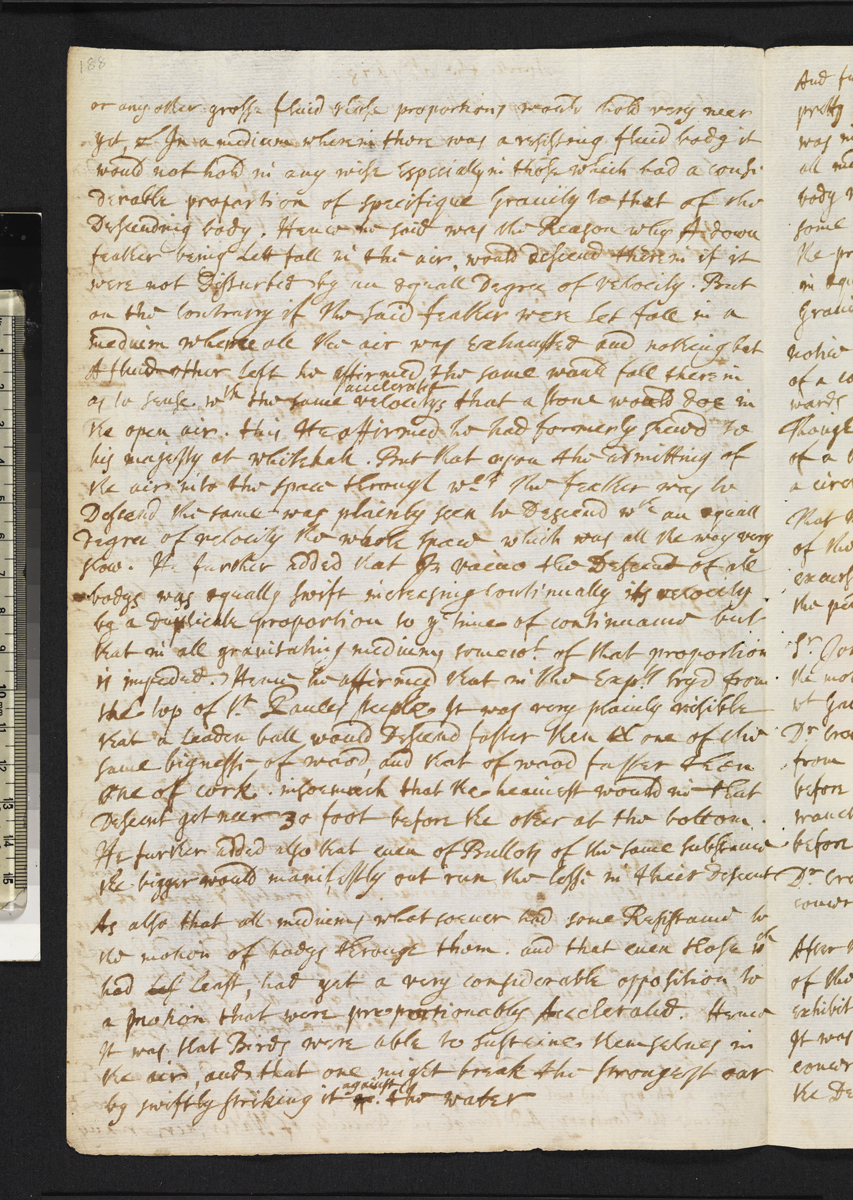 188
or any other grosse fluid those proportions would hold very neer
yet, In a medium wherein there was a resisting fluid body it
would not hold in any wise Especially in those which had a consi
derable proportion of specifique Gravity to that of the
Descending body. Hence he said was the Reason why A down
feather being Lett fall in the air, would descend therein if it
were not Disturbed by an equall Degree of velocity. But
on the Contrary if the said feather were Let fall in a
medium where all the air was Exhausted and nothing but
A fluid other left he affirmed the same would fall therein
accelerated
as to sense wth the same velocitys that a stone would doe in
the open air. this He affirmed he had formerly shewd to
his magesty at whitehall. But that upon the admitting of
the air into the space through wch the feather was to
Descend the same was plainly seen to Descend wth an equall
Degree of velocity the whole space which was all the way very
slow. He further added that In vacuo the Descent of all
bodys was equally swift increasing continually its velocity
by a Duplicate proportion to ye time of continuance but
that in all gravitating mediums somewt of that proportion
is impeded. Hence he affirmed that in the Expts tryd from
the top of St. Paules steeple it was very plainly visible
that a Leaden ball would Descend faster then one of the
same bignesse of wood, and that of wood faster then
one of cork. insoemuch that the heaviest would in that
Descent get neer 30 foot before the other at the bottom.
He further added also that even of Bulletts of the same substance
the bigger would manifestly out run the lesse in their descent
As also that all mediums whatsoever had some Resistance to
the motion of bodys through them. and that even those wch
had least, had yet a very considerable opposition to
a motion that were proportionably Accelerated. Hence
It was that Birds were able to susteine themselves in
the air, and that one might break the strongest oar
against
by swiftly striking it the water
And
pretty
was
all
body
some
the
in
Gravi
notice
of a
wards
Though
of a
a circ
that
of the
the
Sr
the
Dr
from
before
before
Dr
After
of the
exhibit
It was
the De